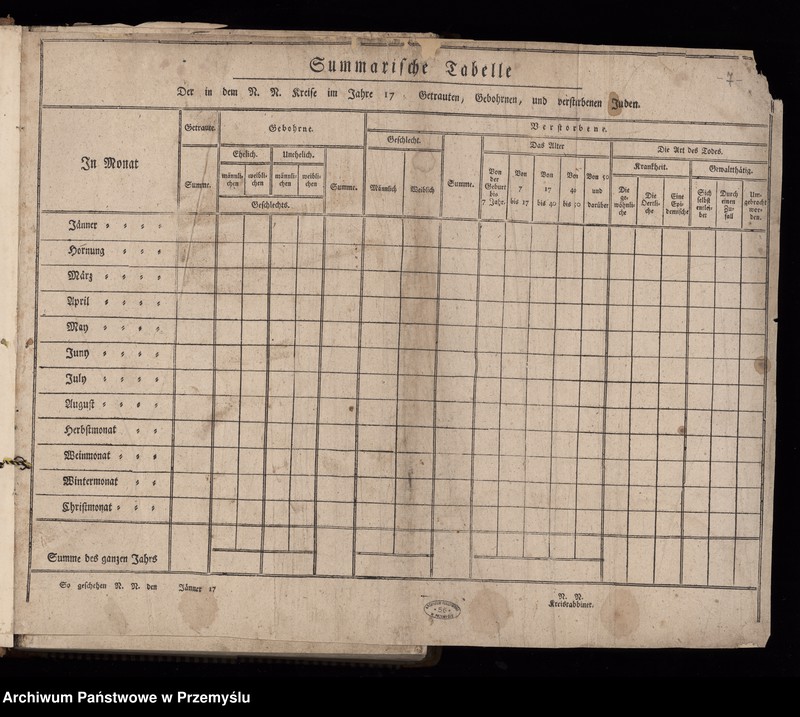 Summarische Tabelle
-7-
Der in dem N. N. Kreise im Jahre 17 Getrauten, Gebohrnen, und verstorbenen Juden.
In Monat
Getraute.
Summe.
Gebohrne.
Ehelich.
Unehelich.
männli-
chen
weibli-
chen
männli-
chen
weibli-
chen
Geschlechts.
Summe.
Verstorbene.
Geschlecht.
Männlich
Weiblich
Summe.
Das Alter
Von
der
Geburt
bis
7 Jahr.
Von
7
bis 17
Von
17
bis 40
Von
40
bis 50
Von 50
und
darüber
Die Art des Todes.
Krankheit.
Gewaltthätig.
Die
ge-
wöhnli-
che
Die
Oertli-
che
Eine
Epi-
demische
Sich
selbst
entlei-
bet
Durch
einen
Zu-
fall
Um-
gebracht
wor-
den.
Jänner
Hornung
März
April
May
Juny
July
August
Herbstmonat
Weinmonat
Wintermonat
Christmonat
Summe des ganzen Jahrs
So geschehen N. N. den Jänner 17
N. N.
Kreisrabbiner.
Archiwum Państwowe w Przemyślu